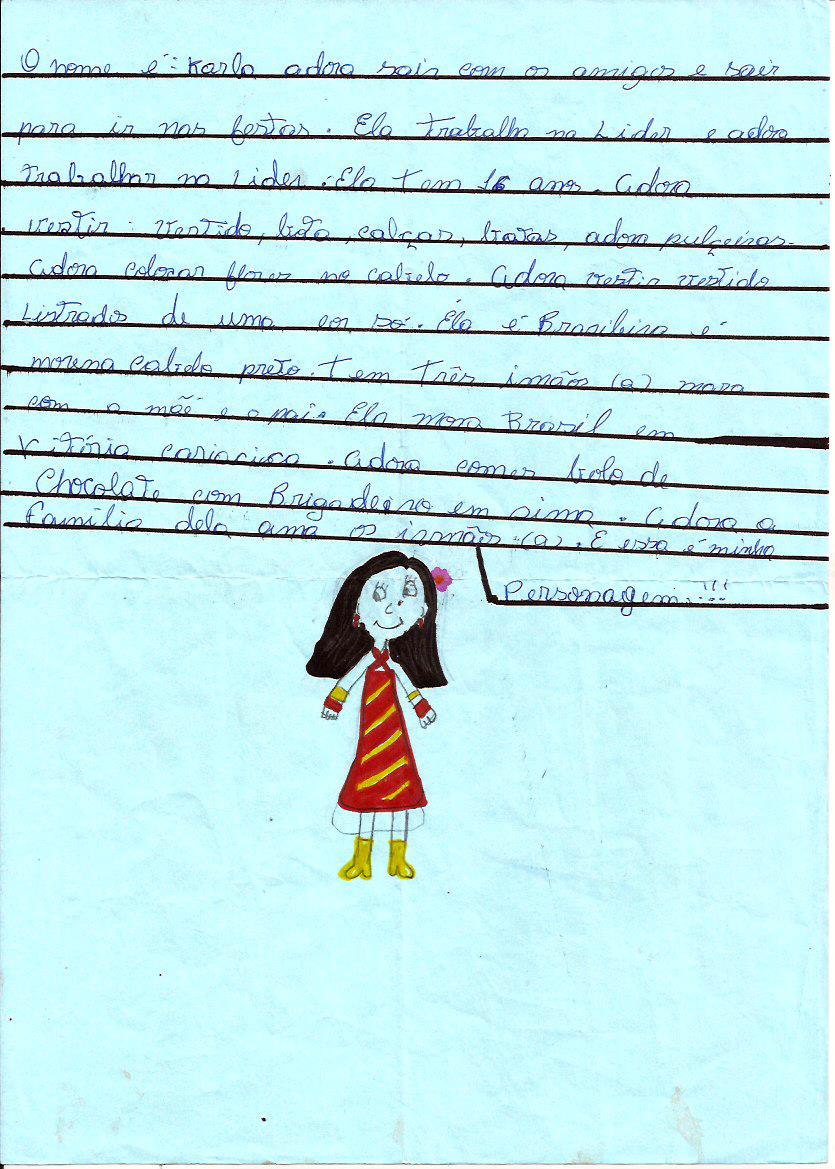 O nome é: Karla adora sair com os amigos e sair
para ir nas festas. Ela trabalha na Lider e adora
trabalhar na Lider. Ela tem 16 anos. Adora
vestir: vestido, bota, calças, batas, adora pulçeiras.
Adora colocar flores no cabelo. Adora vestir vestido
Listrados de uma cor só. Ela é Brasileira é
morena cabelo preto. Tem três imãos (a) mora
com a mãe e o pai. Ela mora Brasil em
Vitória cariacica. Adora comer bolo de
Chocolate com Brigadeiro em sima. Adora a
família dela ama os irmãos (a). E essa é minha
Personagem...!!!